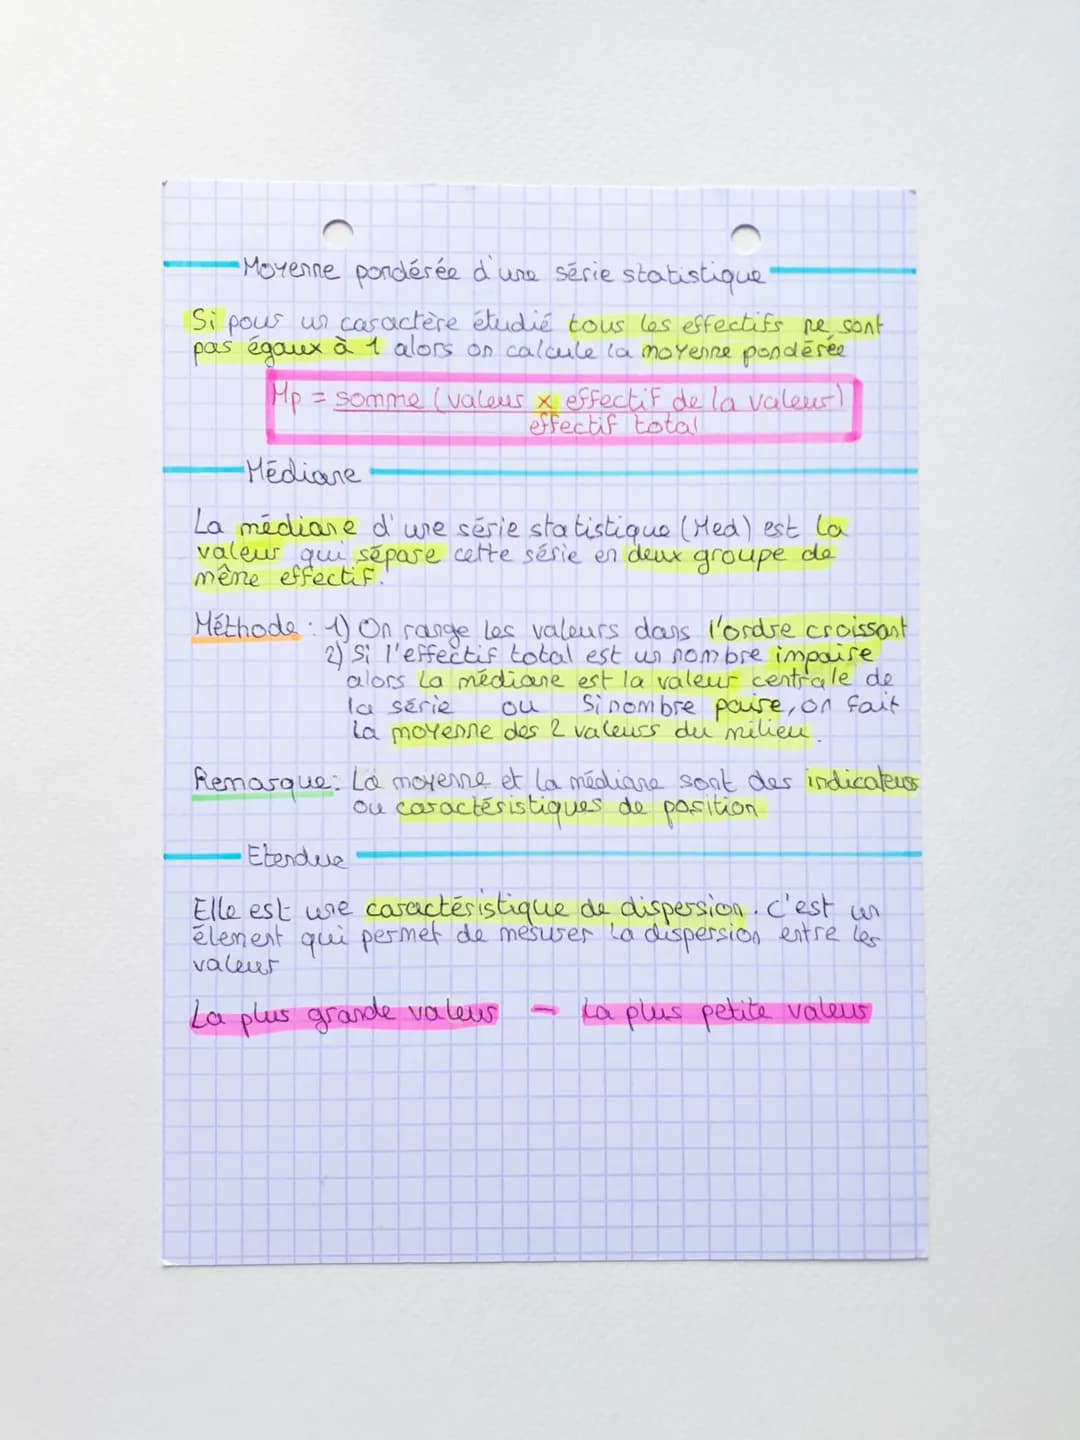 Moyenne pondérée d'une série statistique
Si pour un caractère étudié tous les effectifs ne sont
pas égaux à 1 alors on calcule la moyenne pondérée
Mp = somme (valeur x effectif de la valeur)
effectif total
Médiane
La médiane d'une série statistique (Med) est la
valeur qui sépare cette série en deux groupe de
même effectif.
Méthode : 1) On range les valeurs dans l'ordre croissant
2) Si l'effectif total est un nombre impaire
alors la médiane est la valeur centrale de
la série ou Si nombre paire, on fait
la moyenne des 2 valeurs du milieu.
Remarque : La moyenne et la médiane sont des indicateurs
ou caractéristiques de position
Etendue
Elle est une caractéristique de dispersion. C'est un
élement qui permet de mesurer la dispersion entre les
valeur
La plus grande valeur - La plus petite valeur